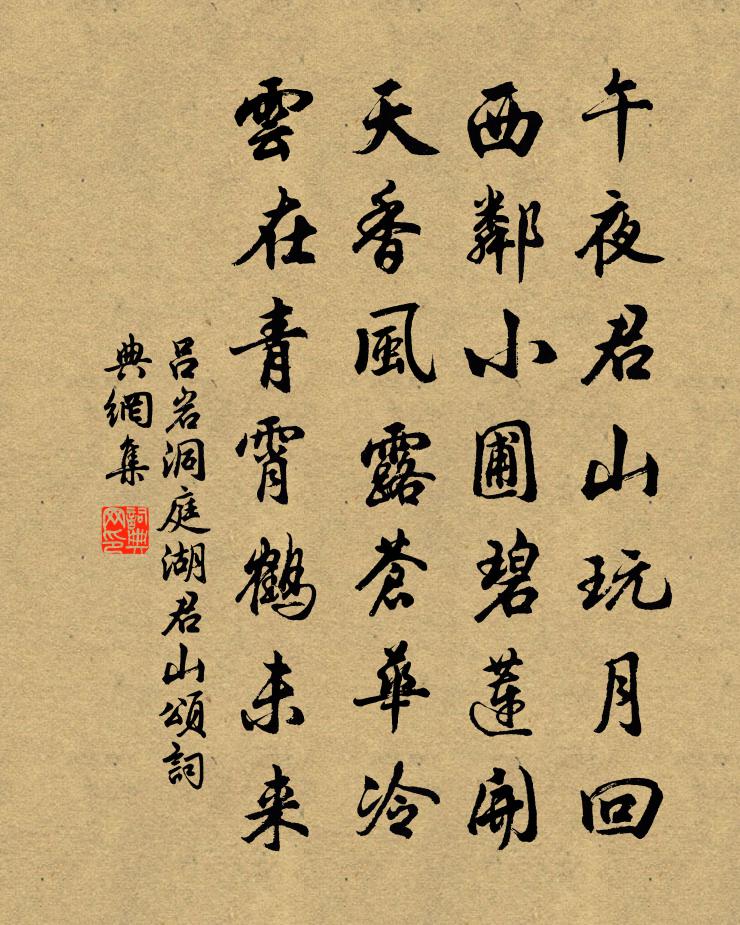 午夜君山玩月回
西鄰小圃碧蓮開
天香風露蒼華冷
雲在青霄鶴未来
吕岩洞庭湖君山頌詞
典網集
詞典
网印